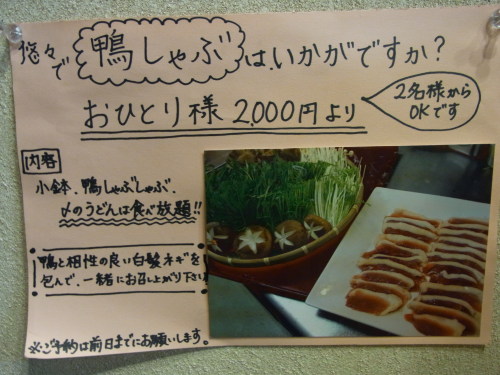 悠々で鴨しゃぶはいかがですか?
おひとり様 2,000円より
2名様から
OKです
内容
小鉢、鴨しゃぶしゃぶ、
〆のうどんは食べ放題!!
鴨と相性の良い白髪ネギを
包んで、一緒にお召し上がり下さい
※ご予約は前日までにお願いします。